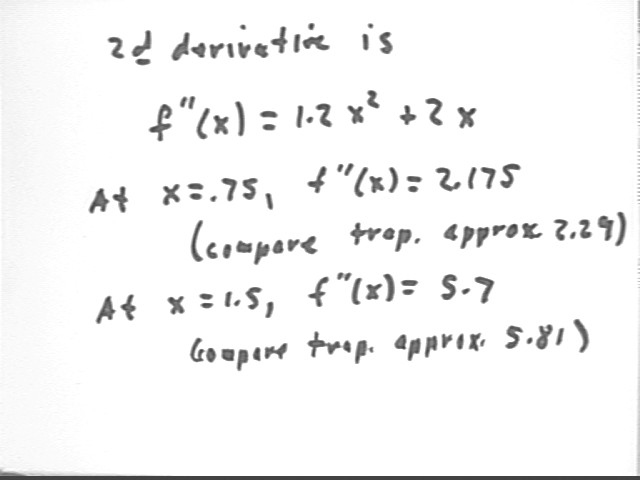 2d derivative is
f"(x) = 1.2 x² + 2 x
At x=.75, f"(x) = 2.175
(compare trap. approx 2.29)
At x = 1.5, f"(x) = 5.7
(compare trap. approx. 5.81)